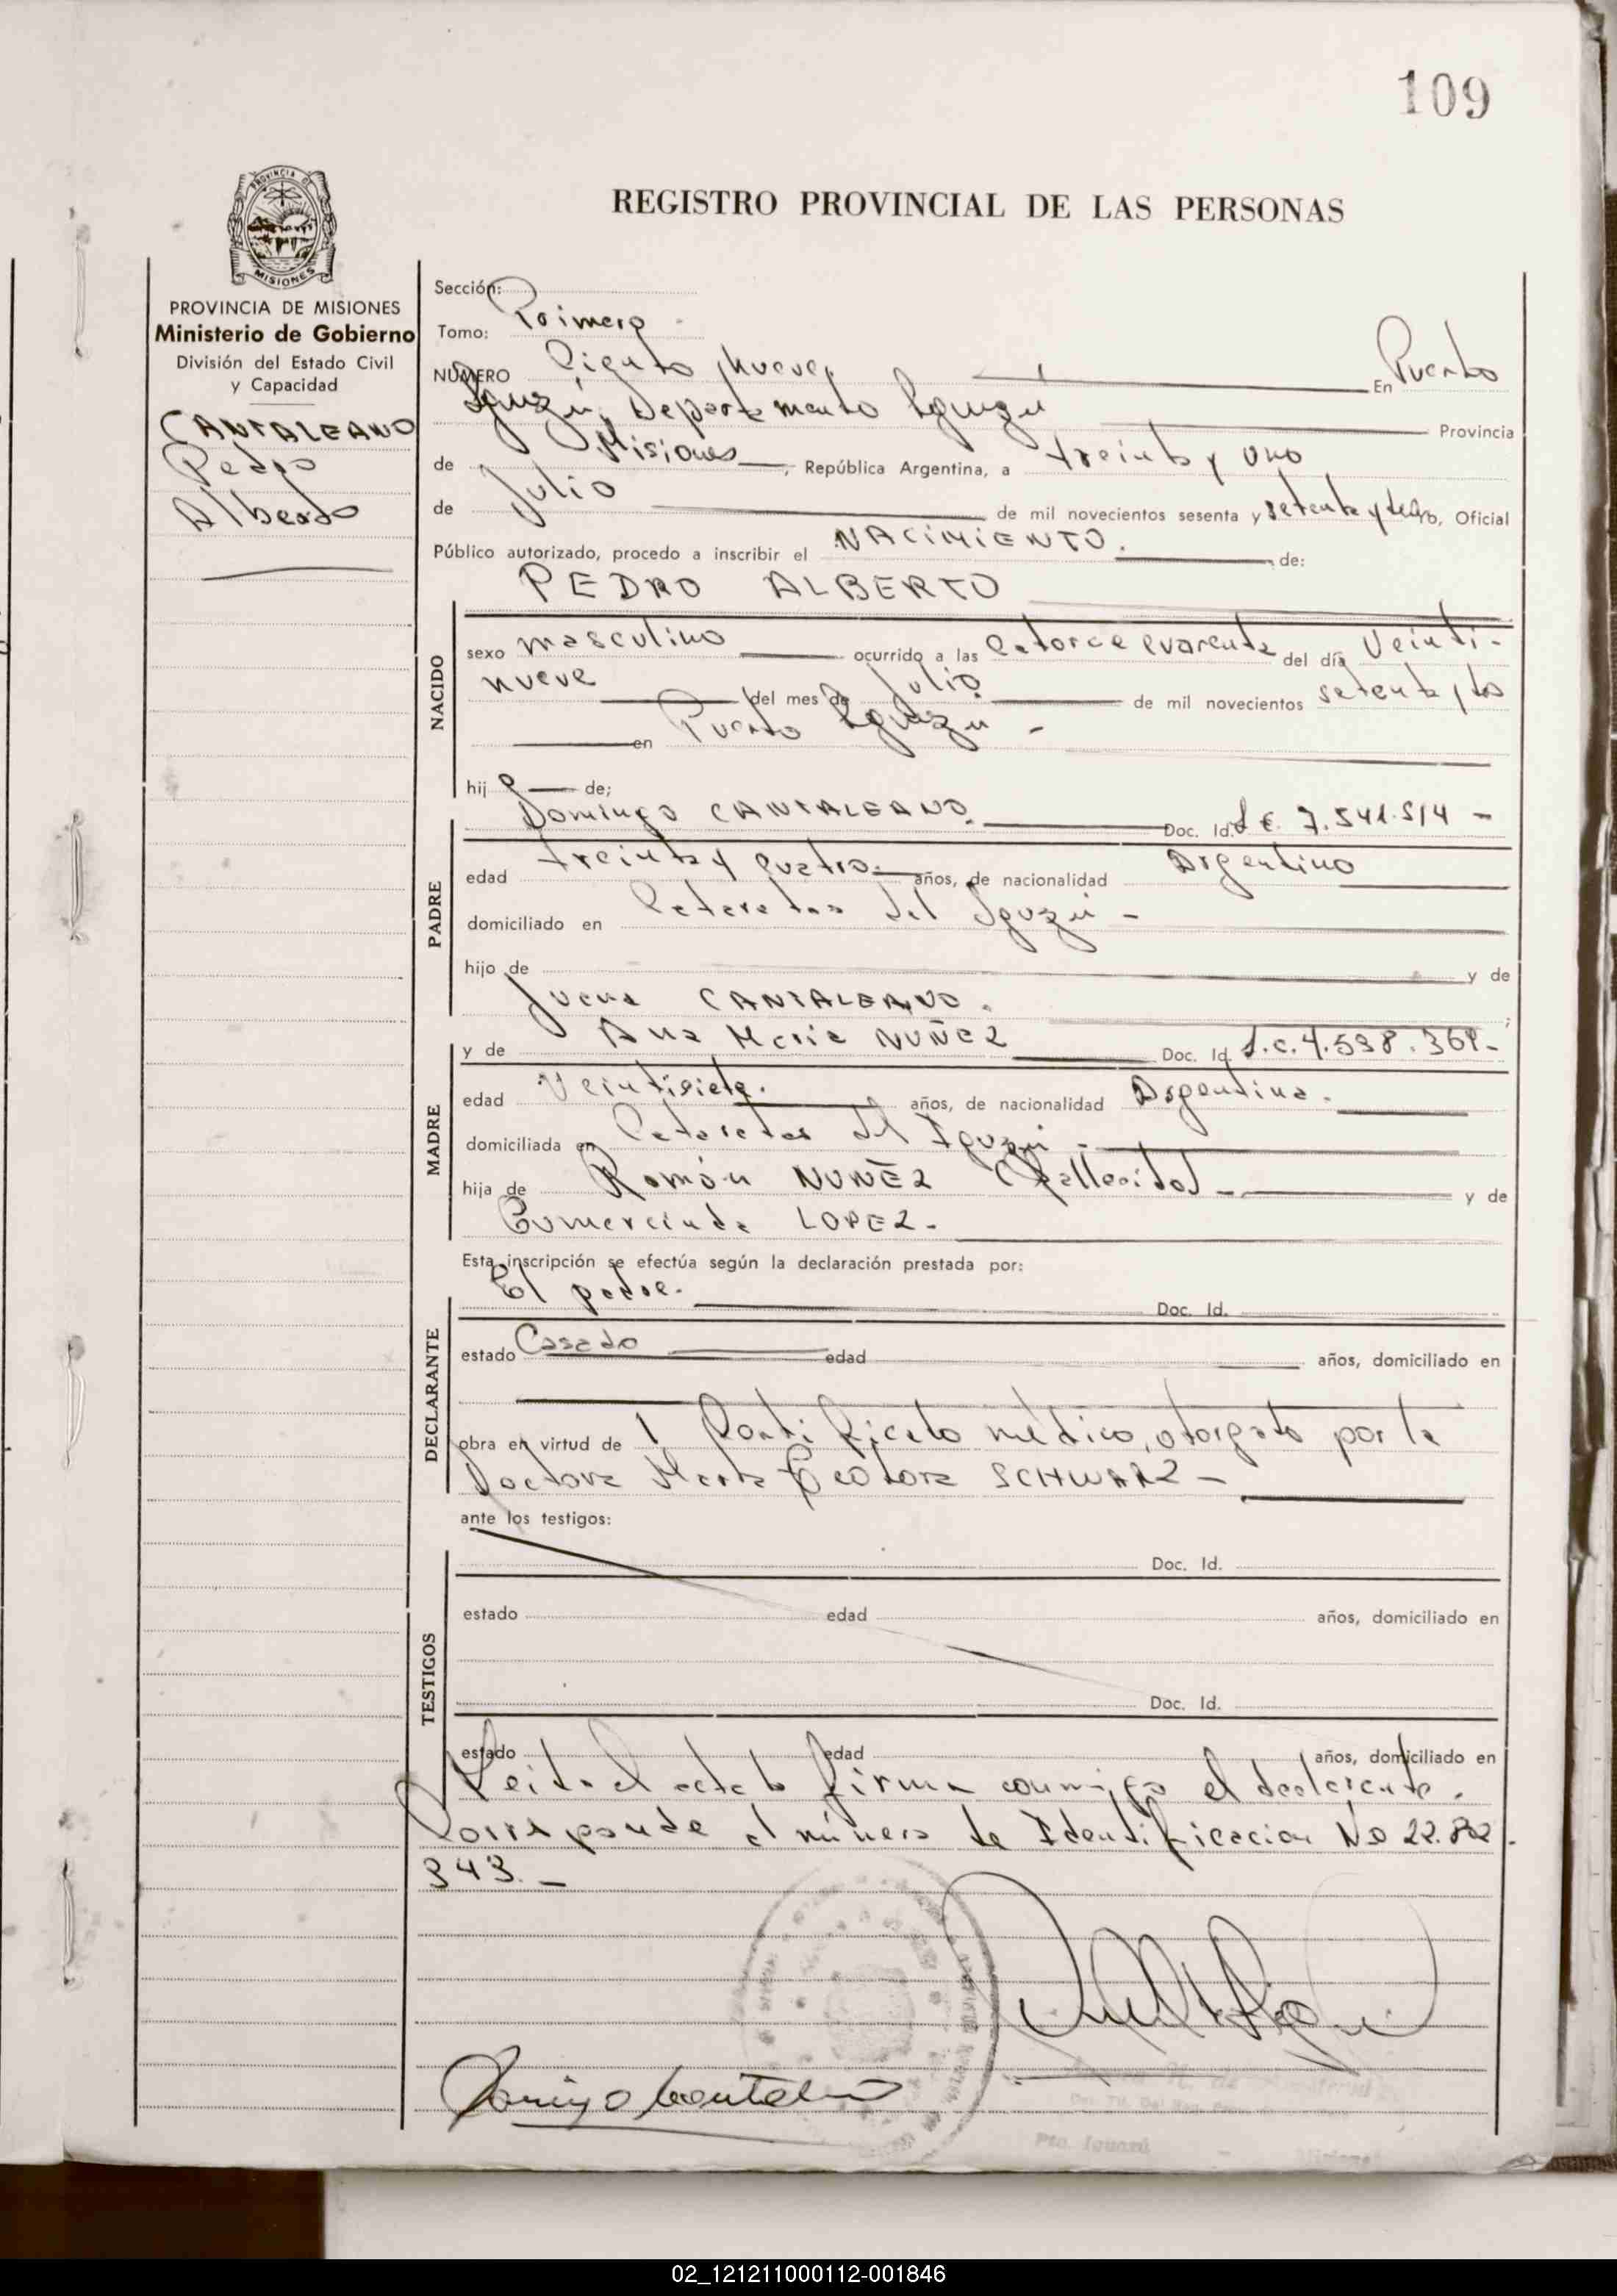 109
PROVINCIA DE
MISIONES
REGISTRO PROVINCIAL DE LAS PERSONAS
PROVINCIA DE MISIONES
Ministerio de Gobierno
División del Estado Civil
y Capacidad
CANTALEANO
Pedro
Alberto
Sección:
Tomo: Primero -
NÚMERO Ciento Nueve, En Puerto
Iguazú, Departamento Iguazú Provincia
de Misiones, República Argentina, a treinta y uno
de Julio de mil novecientos sesenta y setenta y dos, Oficial
Público autorizado, procedo a inscribir el NACIMIENTO. de:
PEDRO ALBERTO
NACIDO
sexo masculino ocurrido a las Catorce cuarenta del día Veinti-
nueve del mes de Julio de mil novecientos setenta y dos
en Puerto Iguazú -
hijo de;
PADRE
Domingo CANTALEANO. Doc. Id. L.E. 7.541.514 -
edad treinta y cuatro. años, de nacionalidad Argentino
domiciliado en Cataratas del Iguazú -
hijo de y de
Juana CANTALEANO. ;
MADRE
y de Ana Maria NUÑEZ Doc. Id. L.C. 4.598.369-
edad Veintisiete. años, de nacionalidad Argentina.
domiciliada en Cataratas del Iguazú -
hija de Román NUÑEZ (fallecido) - y de
Gumercinda LOPEZ -
Esta inscripción se efectúa según la declaración prestada por:
DECLARANTE
El padre. Doc. Id.
estado Casado edad años, domiciliado en
obra en virtud de 1 Certificado médico, otorgado por la
Doctora Marta Teodora SCHWARZ -
ante los testigos:
TESTIGOS
Doc. Id.
estado edad años, domiciliado en
Doc. Id.
estado edad años, domiciliado en
Leida el acta la firma conmigo el declarante.
Corresponde el número de Identificacion No 22.802.
343. -
Domingo Cantaleano
Pto. Iguazú - Misiones
02_121211000112-001846